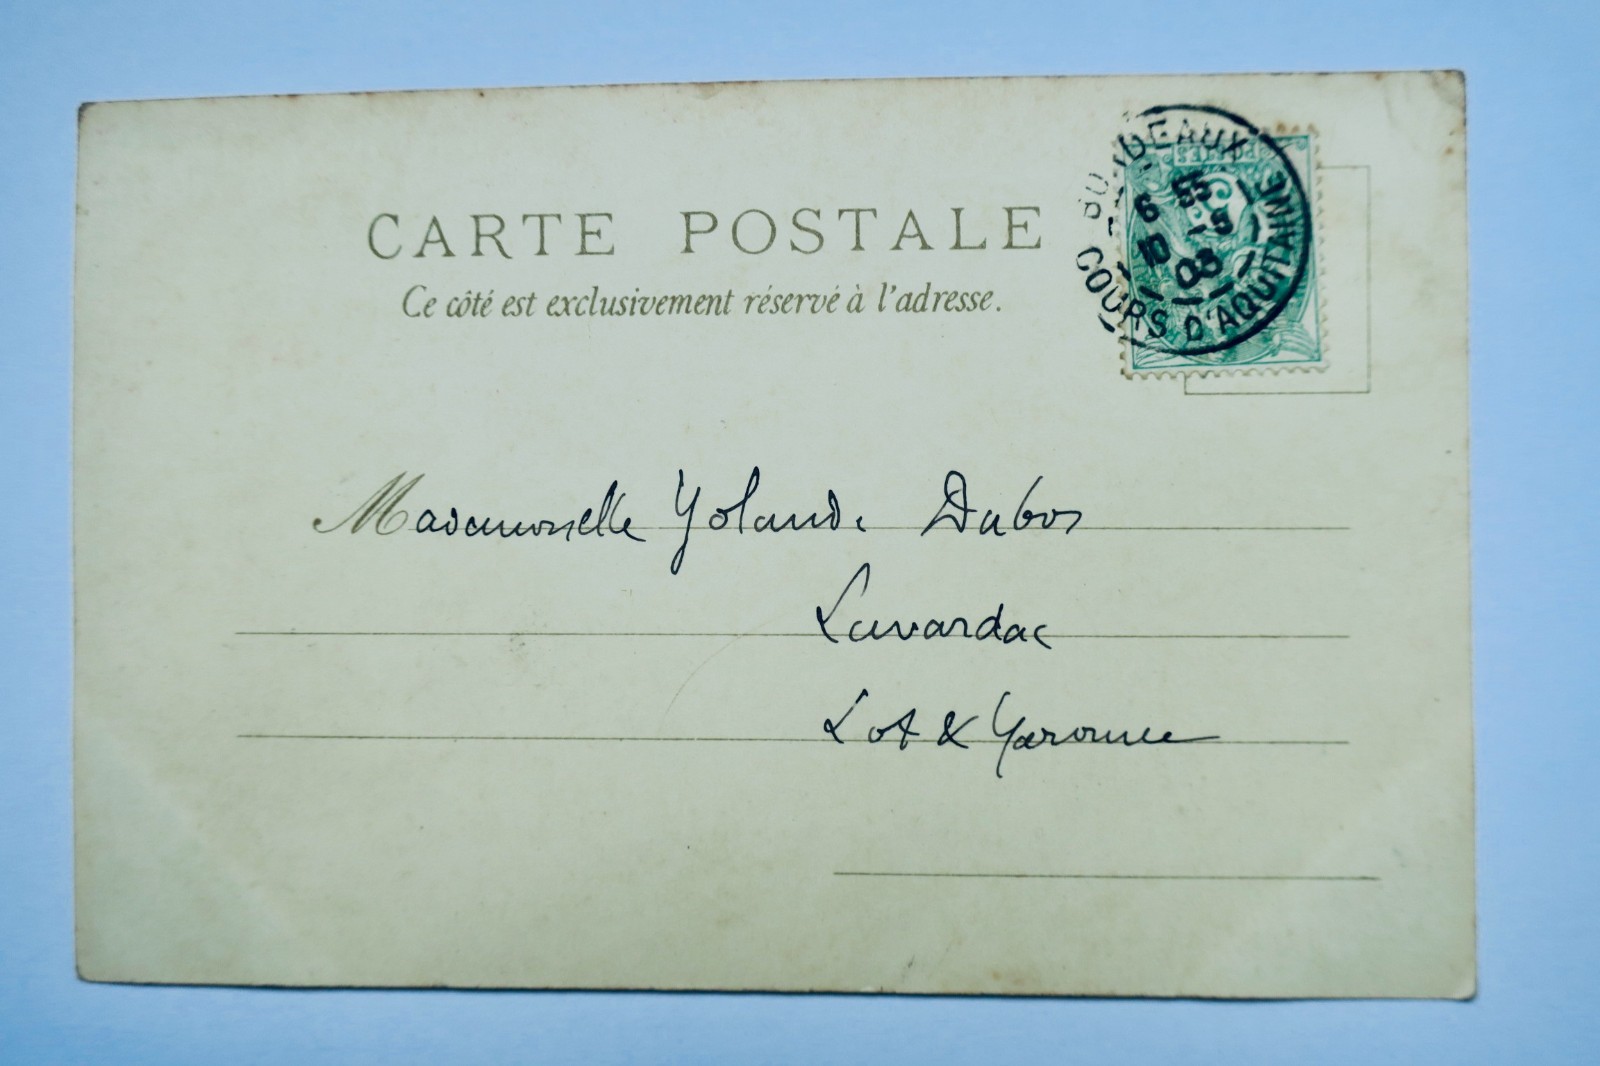 CARTE POSTALE
Ce côté est exclusivement réservé à l'adresse.
BORDEAUX
6 55
10 -5
03
COURS D'AQUITAINE
Mademoiselle Yolande Dubos
Lavardac
Lot & Garonne